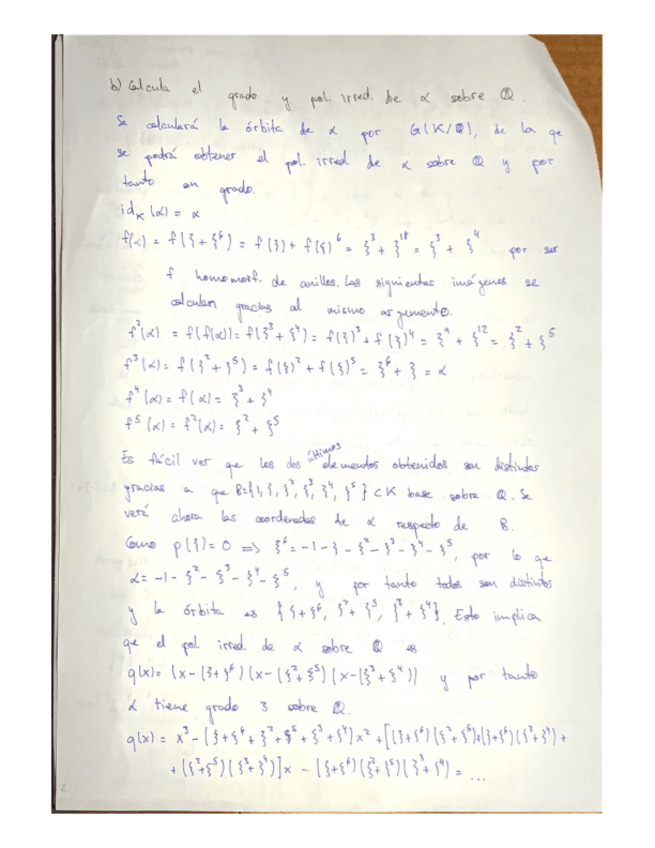 b) Calcula el grado y pol. irred. de α sobre Q.
Se calculará la órbita de α por G(K/Q), de la que
se podrá obtener el pol. irred. de α sobre Q y por
tanto su grado.
id_K (α) = α
f(α) = f(ξ + ξ^6) = f(ξ) + f(ξ)^6 = ξ^3 + ξ^18 = ξ^3 + ξ^4 por ser
f homomorf. de anillos. Las siguientes imágenes se
calculan gracias al mismo argumento.
f^2(α) = f(f(α)) = f(ξ^3 + ξ^4) = f(ξ)^3 + f(ξ)^4 = ξ^9 + ξ^12 = ξ^2 + ξ^5
f^3(α) = f(ξ^2 + ξ^5) = f(ξ)^2 + f(ξ)^5 = ξ^6 + ξ = α
f^4(α) = f(α) = ξ^3 + ξ^4
f^5(α) = f^2(α) = ξ^2 + ξ^5
Es fácil ver que los dos últimos elementos obtenidos son distintos
gracias a que B={1, ξ, ξ^2, ξ^3, ξ^4, ξ^5} ⊂ K base sobre Q. Se
verá ahora las coordenadas de α respecto de B.
Como p(ξ) = 0 => ξ^6 = -1 - ξ - ξ^2 - ξ^3 - ξ^4 - ξ^5, por lo que
α = -1 - ξ^2 - ξ^3 - ξ^4 - ξ^5, y por tanto todos son distintos
y la órbita es {ξ + ξ^6, ξ^2 + ξ^5, ξ^3 + ξ^4}. Esto implica
que el pol irred. de α sobre Q es
q(x) = (x - (ξ + ξ^6)) (x - (ξ^2 + ξ^5)) (x - (ξ^3 + ξ^4)) y por tanto
α tiene grado 3 sobre Q.
q(x) = x^3 - [ξ + ξ^6 + ξ^2 + ξ^5 + ξ^3 + ξ^4] x^2 + [(ξ + ξ^6)(ξ^2 + ξ^5) + (ξ + ξ^6)(ξ^3 + ξ^4) +
+ (ξ^2 + ξ^5)(ξ^3 + ξ^4)] x - (ξ + ξ^6)(ξ^2 + ξ^5)(ξ^3 + ξ^4) = ...
2